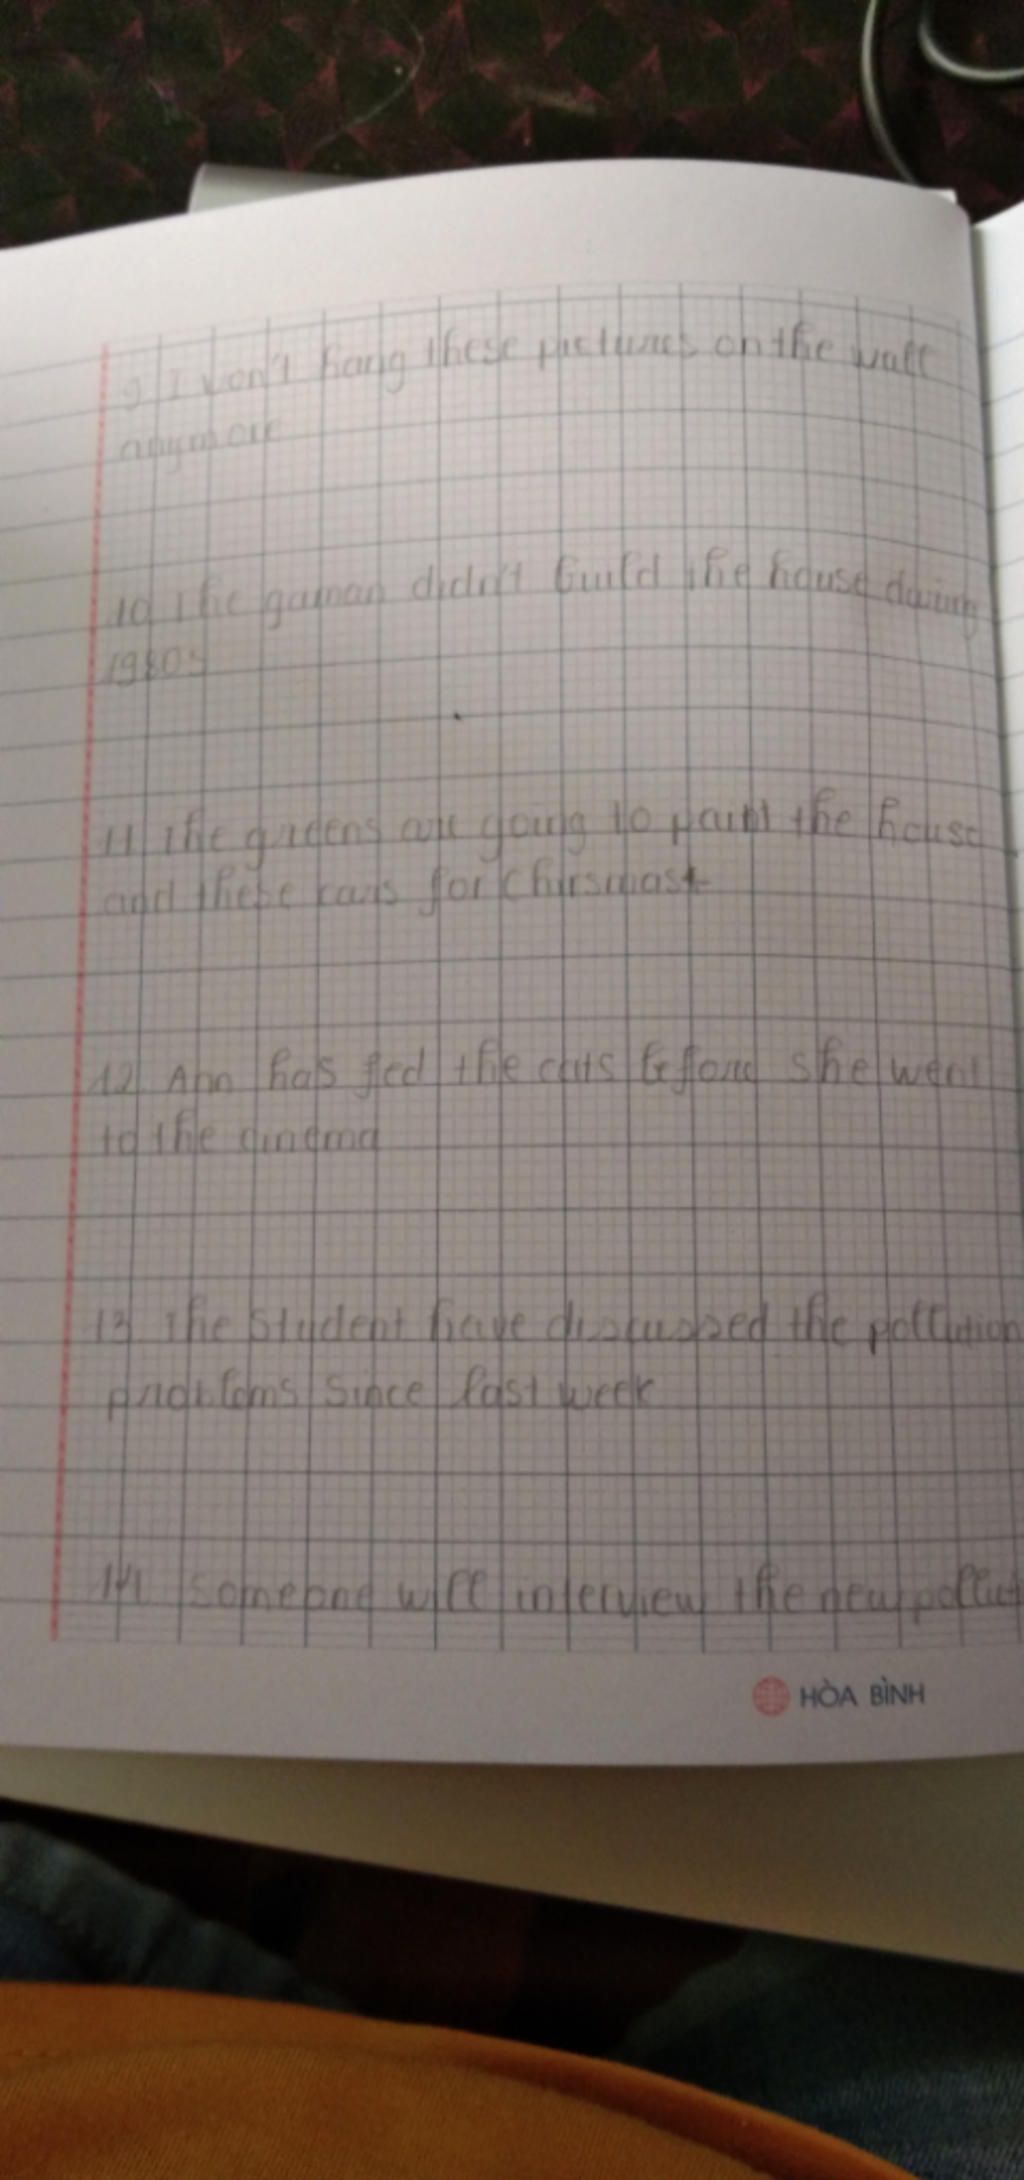 9 I won't hang these pictures on the wall
anymore
10 The gaman didn't build the house during
1980s
11 The greens are going to paint the house
and these cars for Chirsmast
12. Ann has fed the cats before she went
to the cinema
13 The Student have discussed the pollution
problems since last week
14. Someone will interview the new
HÒA BÌNH